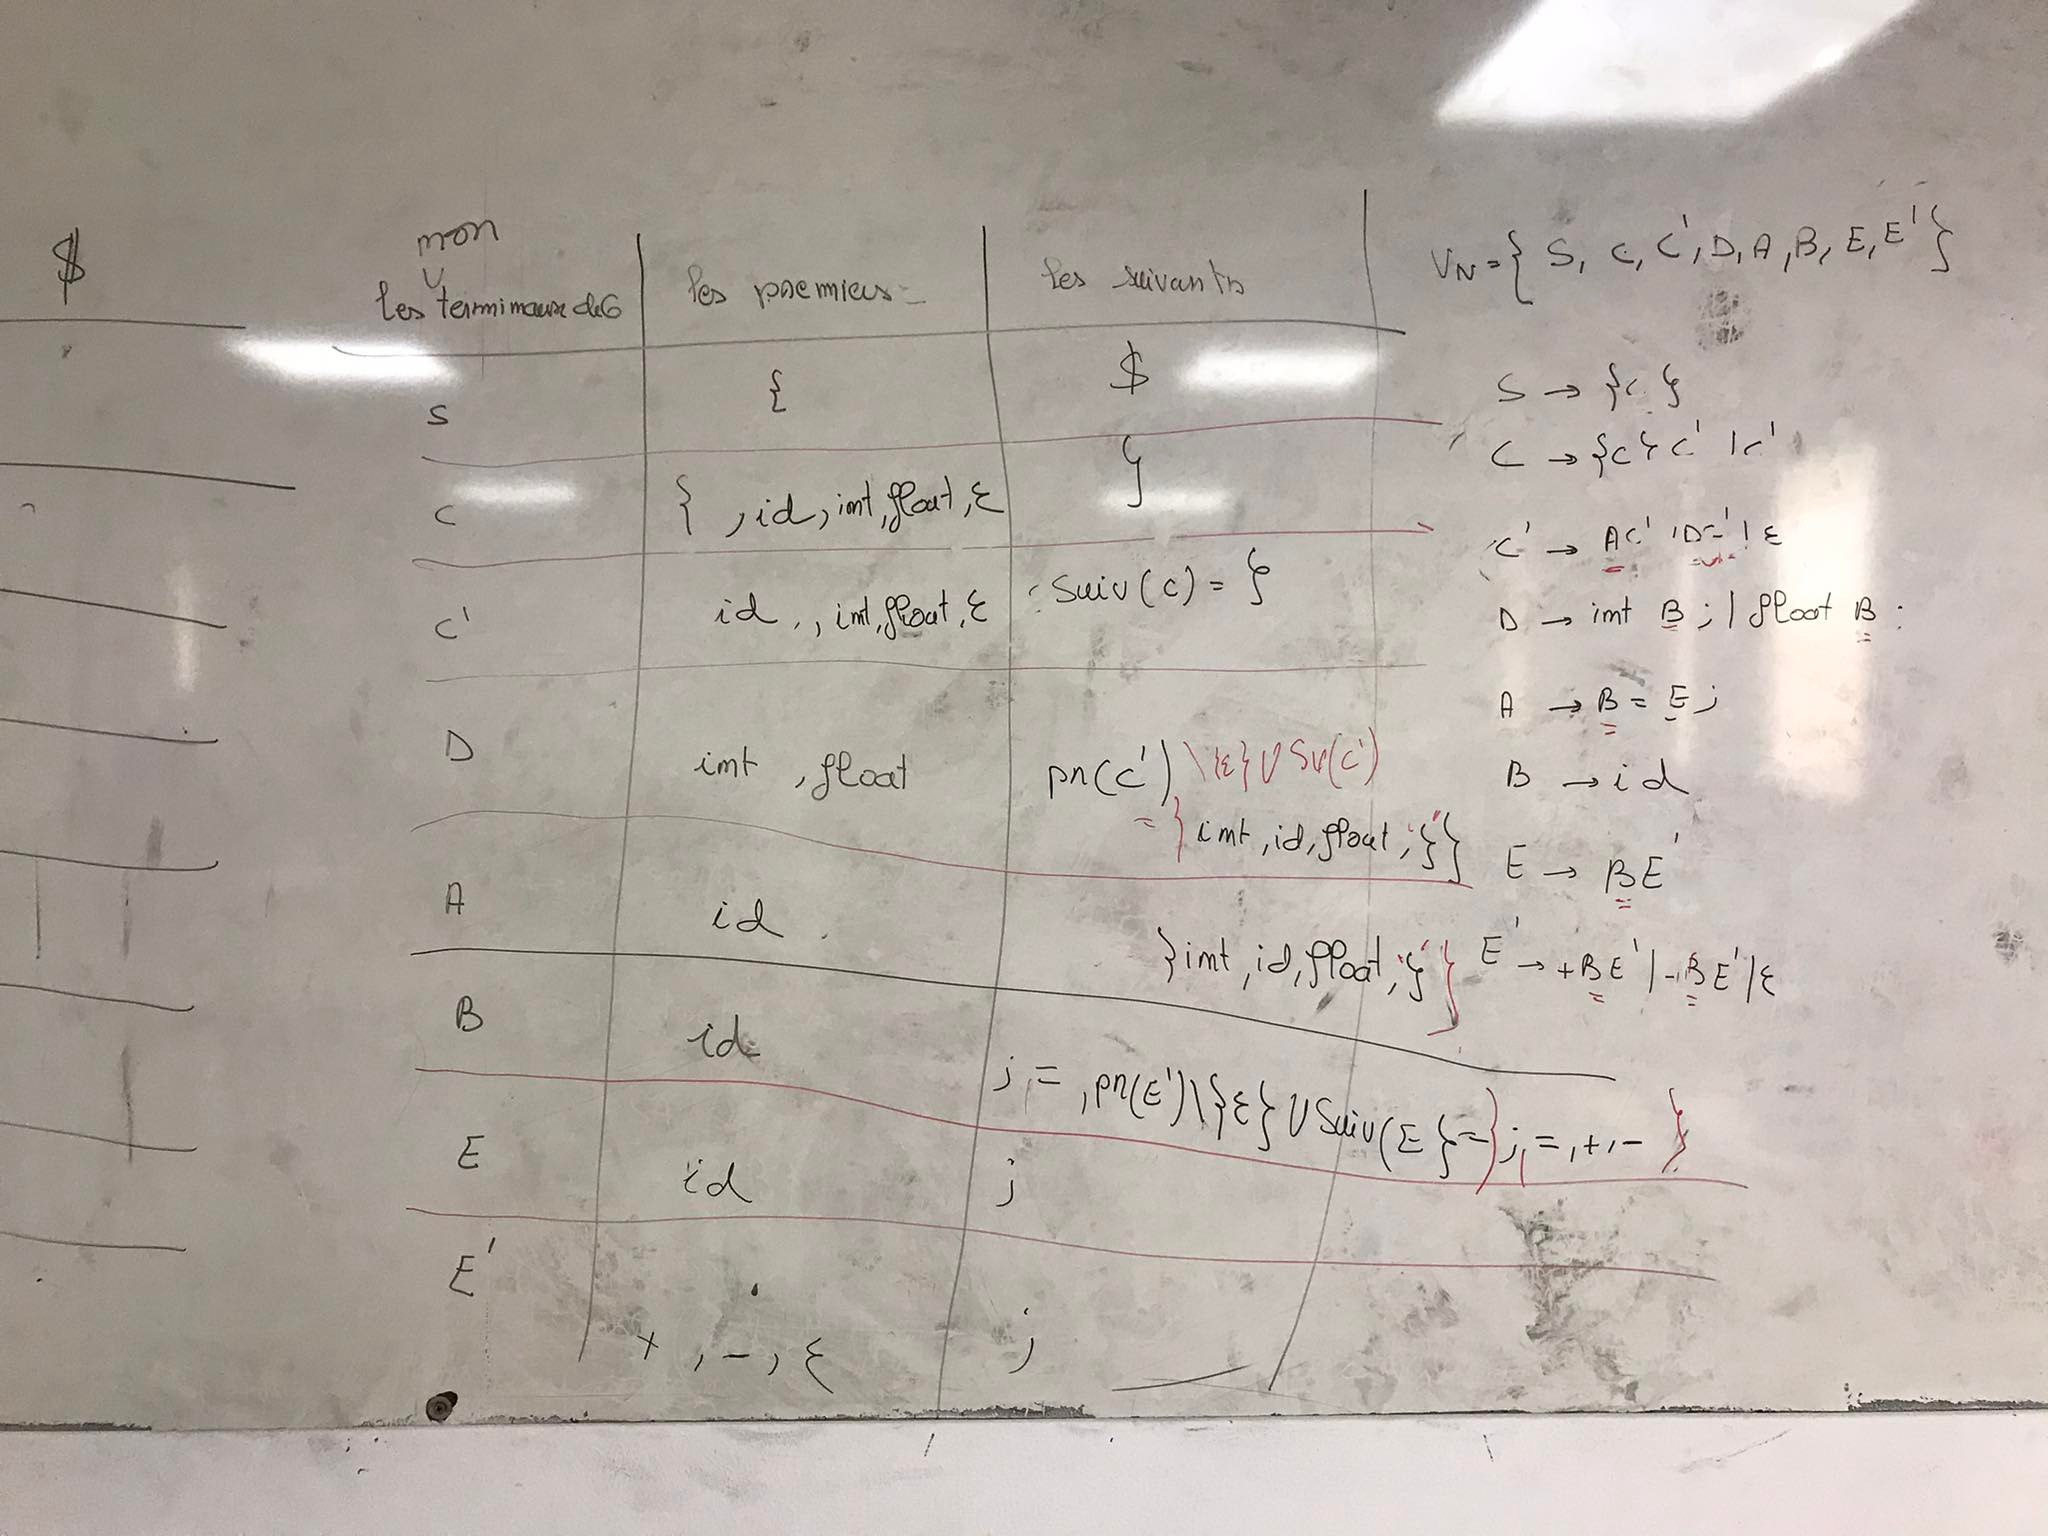 $
non
les terminaux de G | les premiers | les suivants
S | { | $
C | { , id, int, float, ε | }
C' | id , , int, float, ε | Suiv(C) = }
D | int , float | pr(C') \{ε} U Suv(C')
= { int, id, float, "}" }
A | id | { int, id, float, "}" }
B | id | ; , = , pr(E')\{ε} U Suiv(E} = { ; , = , + , - }
E | id | ;
E' | + , - , ε | ;
VN = { S, C, C', D, A, B, E, E' }
S → { C }
C → { C } C' | C'
C' → A C' | D | ε
D → int B ; | float B ;
A → B = E ;
B → id
E → B E'
E' → + B E' | - B E' | ε